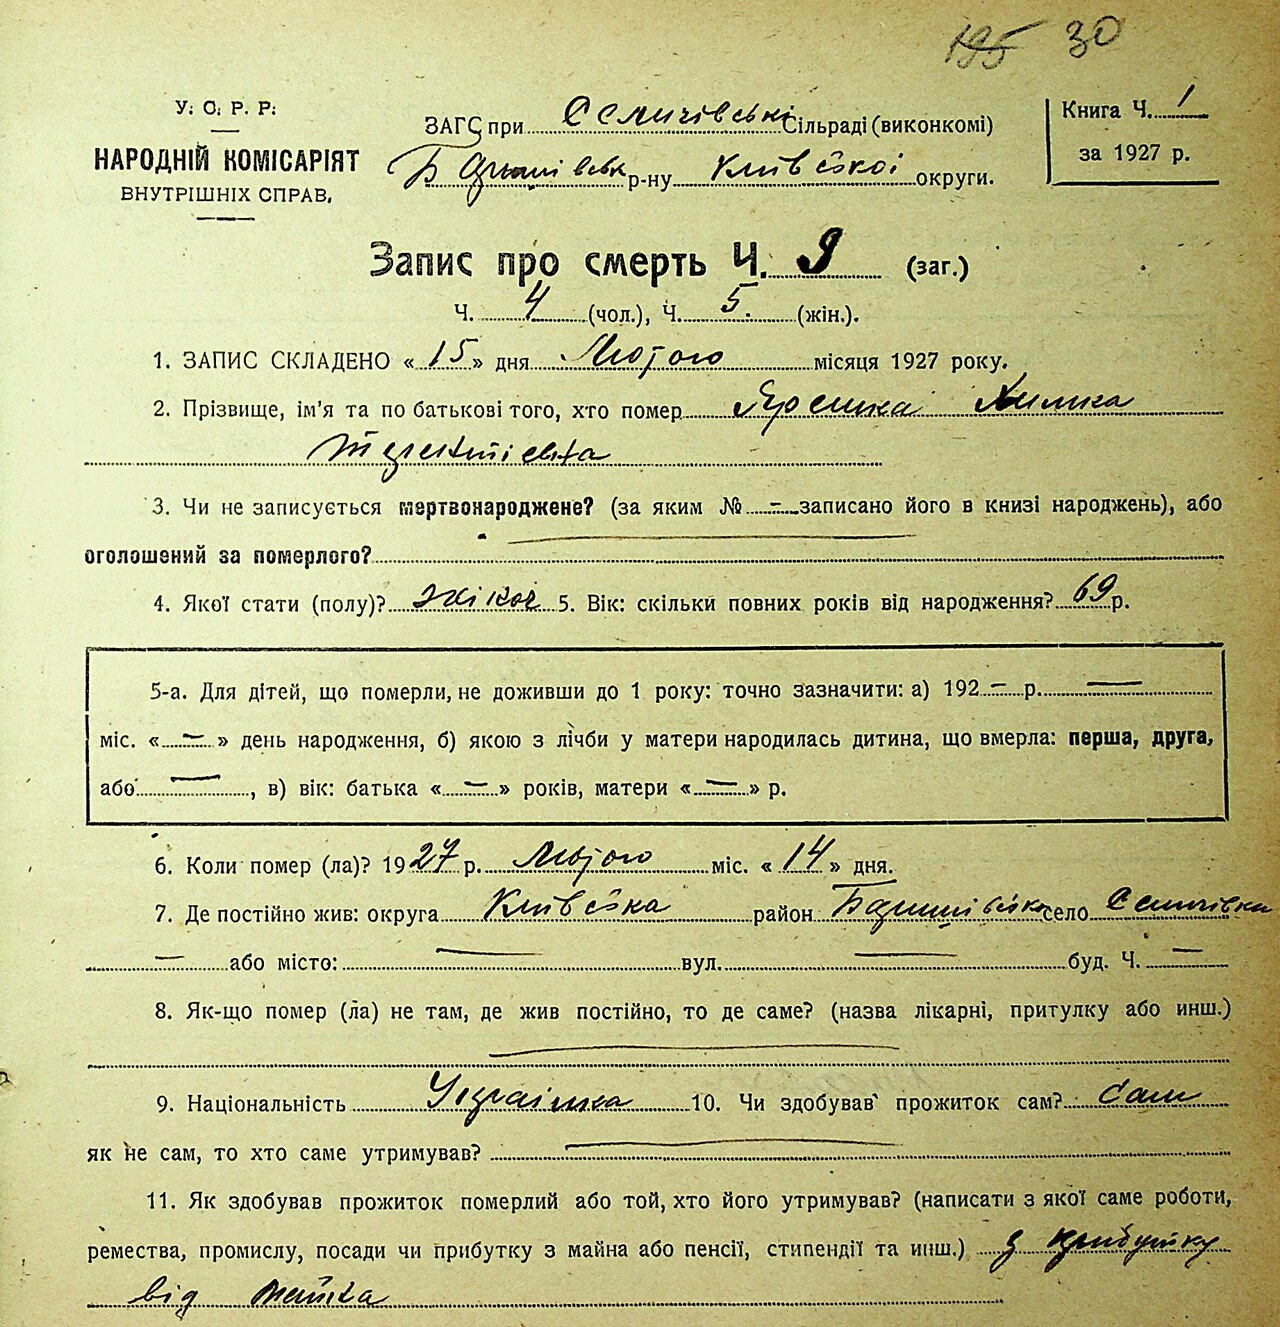 195 30
У. С. Р. Р.
НАРОДНІЙ КОМІСАРІЯТ
ВНУТРІШНІХ СПРАВ.
ЗАГС при Селичівські Сільраді (виконкомі)
Баришівськ р-ну Київської округи.
Книга Ч. 1
за 1927 р.
Запис про смерть Ч. 9 (заг.)
Ч. 4 (чол.), Ч. 5. (жін.).
1. ЗАПИС СКЛАДЕНО « 15 » дня Лютого місяця 1927 року.
2. Прізвище, ім'я та по батькові того, хто помер Ярешка Химка
3. Чи не записується мертвонароджене? (за яким № - записано його в книзі народжень), або
оголошений за померлого?
4. Якої стати (полу)? жіноч 5. Вік: скільки повних років від народження? 69 р.
5-а. Для дітей, що померли, не доживши до 1 року: точно зазначити: а) 192 – р. —
міс. « – » день народження, б) якою з лічби у матери народилась дитина, що вмерла: перша, друга,
або — , в) вік: батька « – » років, матери « – » р.
6. Коли помер (ла)? 1927 р. Лютого міс. « 14 » дня.
7. Де постійно жив: округа Київська район Баришівськ село Селичівка
— або місто: — вул. — буд. Ч. —
8. Як-що помер (ла) не там, де жив постійно, то де саме? (назва лікарні, притулку або инш.)
9. Національність Українка 10. Чи здобував прожиток сам? Сам
як не сам, то хто саме утримував? —
11. Як здобував прожиток померлий або той, хто його утримував? (написати з якої саме роботи,
ремества, промислу, посади чи прибутку з майна або пенсії, стипендії та инш.) з прибутку
від майна